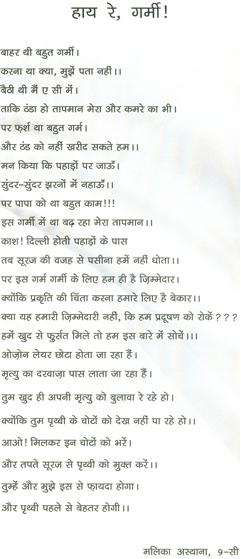 हाय रे, गर्मी!
बाहर थी बहुत गर्मी।
करना था क्या, मुझें पता नहीं।।
बैठी थी मैं ए सी में।
ताकि ठंडा हो तापमान मेरा और कमरे का भी।
पर फ़र्श था बहुत गर्म।
और ठंड को नहीं खरीद सकते हम।।
मन किया कि पहाड़ों पर जाऊँ।
सुंदर-सुंदर झरनों में नहाऊँ।।
पर पापा को था बहुत काम!!!
इस गर्मी में था बढ़ रहा मेरा तापमान।।
काश! दिल्ली होती पहाड़ों के पास
तब सूरज की वजह से पसीना हमें नहीं धोता।।
पर इस गर्म गर्मी के लिए हम ही है ज़िम्मेदार।
क्योंकि प्रकृति की चिंता करना हमारे लिए है बेकार।।
क्या यह हमारी ज़िम्मेदारी नहीं, कि हम प्रदूषण को रोकें???
हमें खुद से फुर्सत मिले तो हम इस बारे में सोचें।।।
ओज़ोन लेयर छोटा होता जा रहा हैं।
मृत्यु का दरवाज़ा पास लाता जा रहा हैं।
तुम खुद ही अपनी मृत्यु को बुलावा रे रहे हो।
क्योंकि तुम पृथ्वी के चोटों को देख नहीं पा रहे हो।।
आओ! मिलकर इन चोटों को भरें।
और तपते सूरज से पृथ्वी को मुक्त करें।।
तुम्हें और मुझे इस से फ़ायदा होगा।
और पृथ्वी पहले से बेहतर होगी।।
मलिका अस्थाना, ९-सी